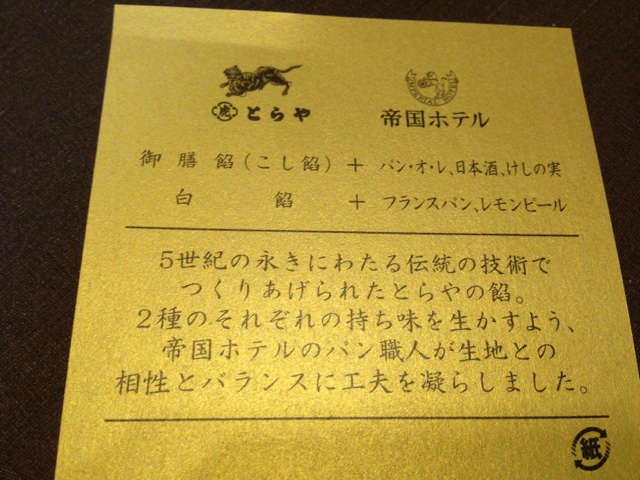 虎 とらや
IMPERIAL HOTEL
帝国ホテル
御膳餡(こし餡) + パン・オ・レ、日本酒、けしの実
白餡 + フランスパン、レモンピール
5世紀の永きにわたる伝統の技術で
つくりあげられたとらやの餡。
2種のそれぞれの持ち味を生かすよう、
帝国ホテルのパン職人が生地との
相性とバランスに工夫を凝らしました。
紙